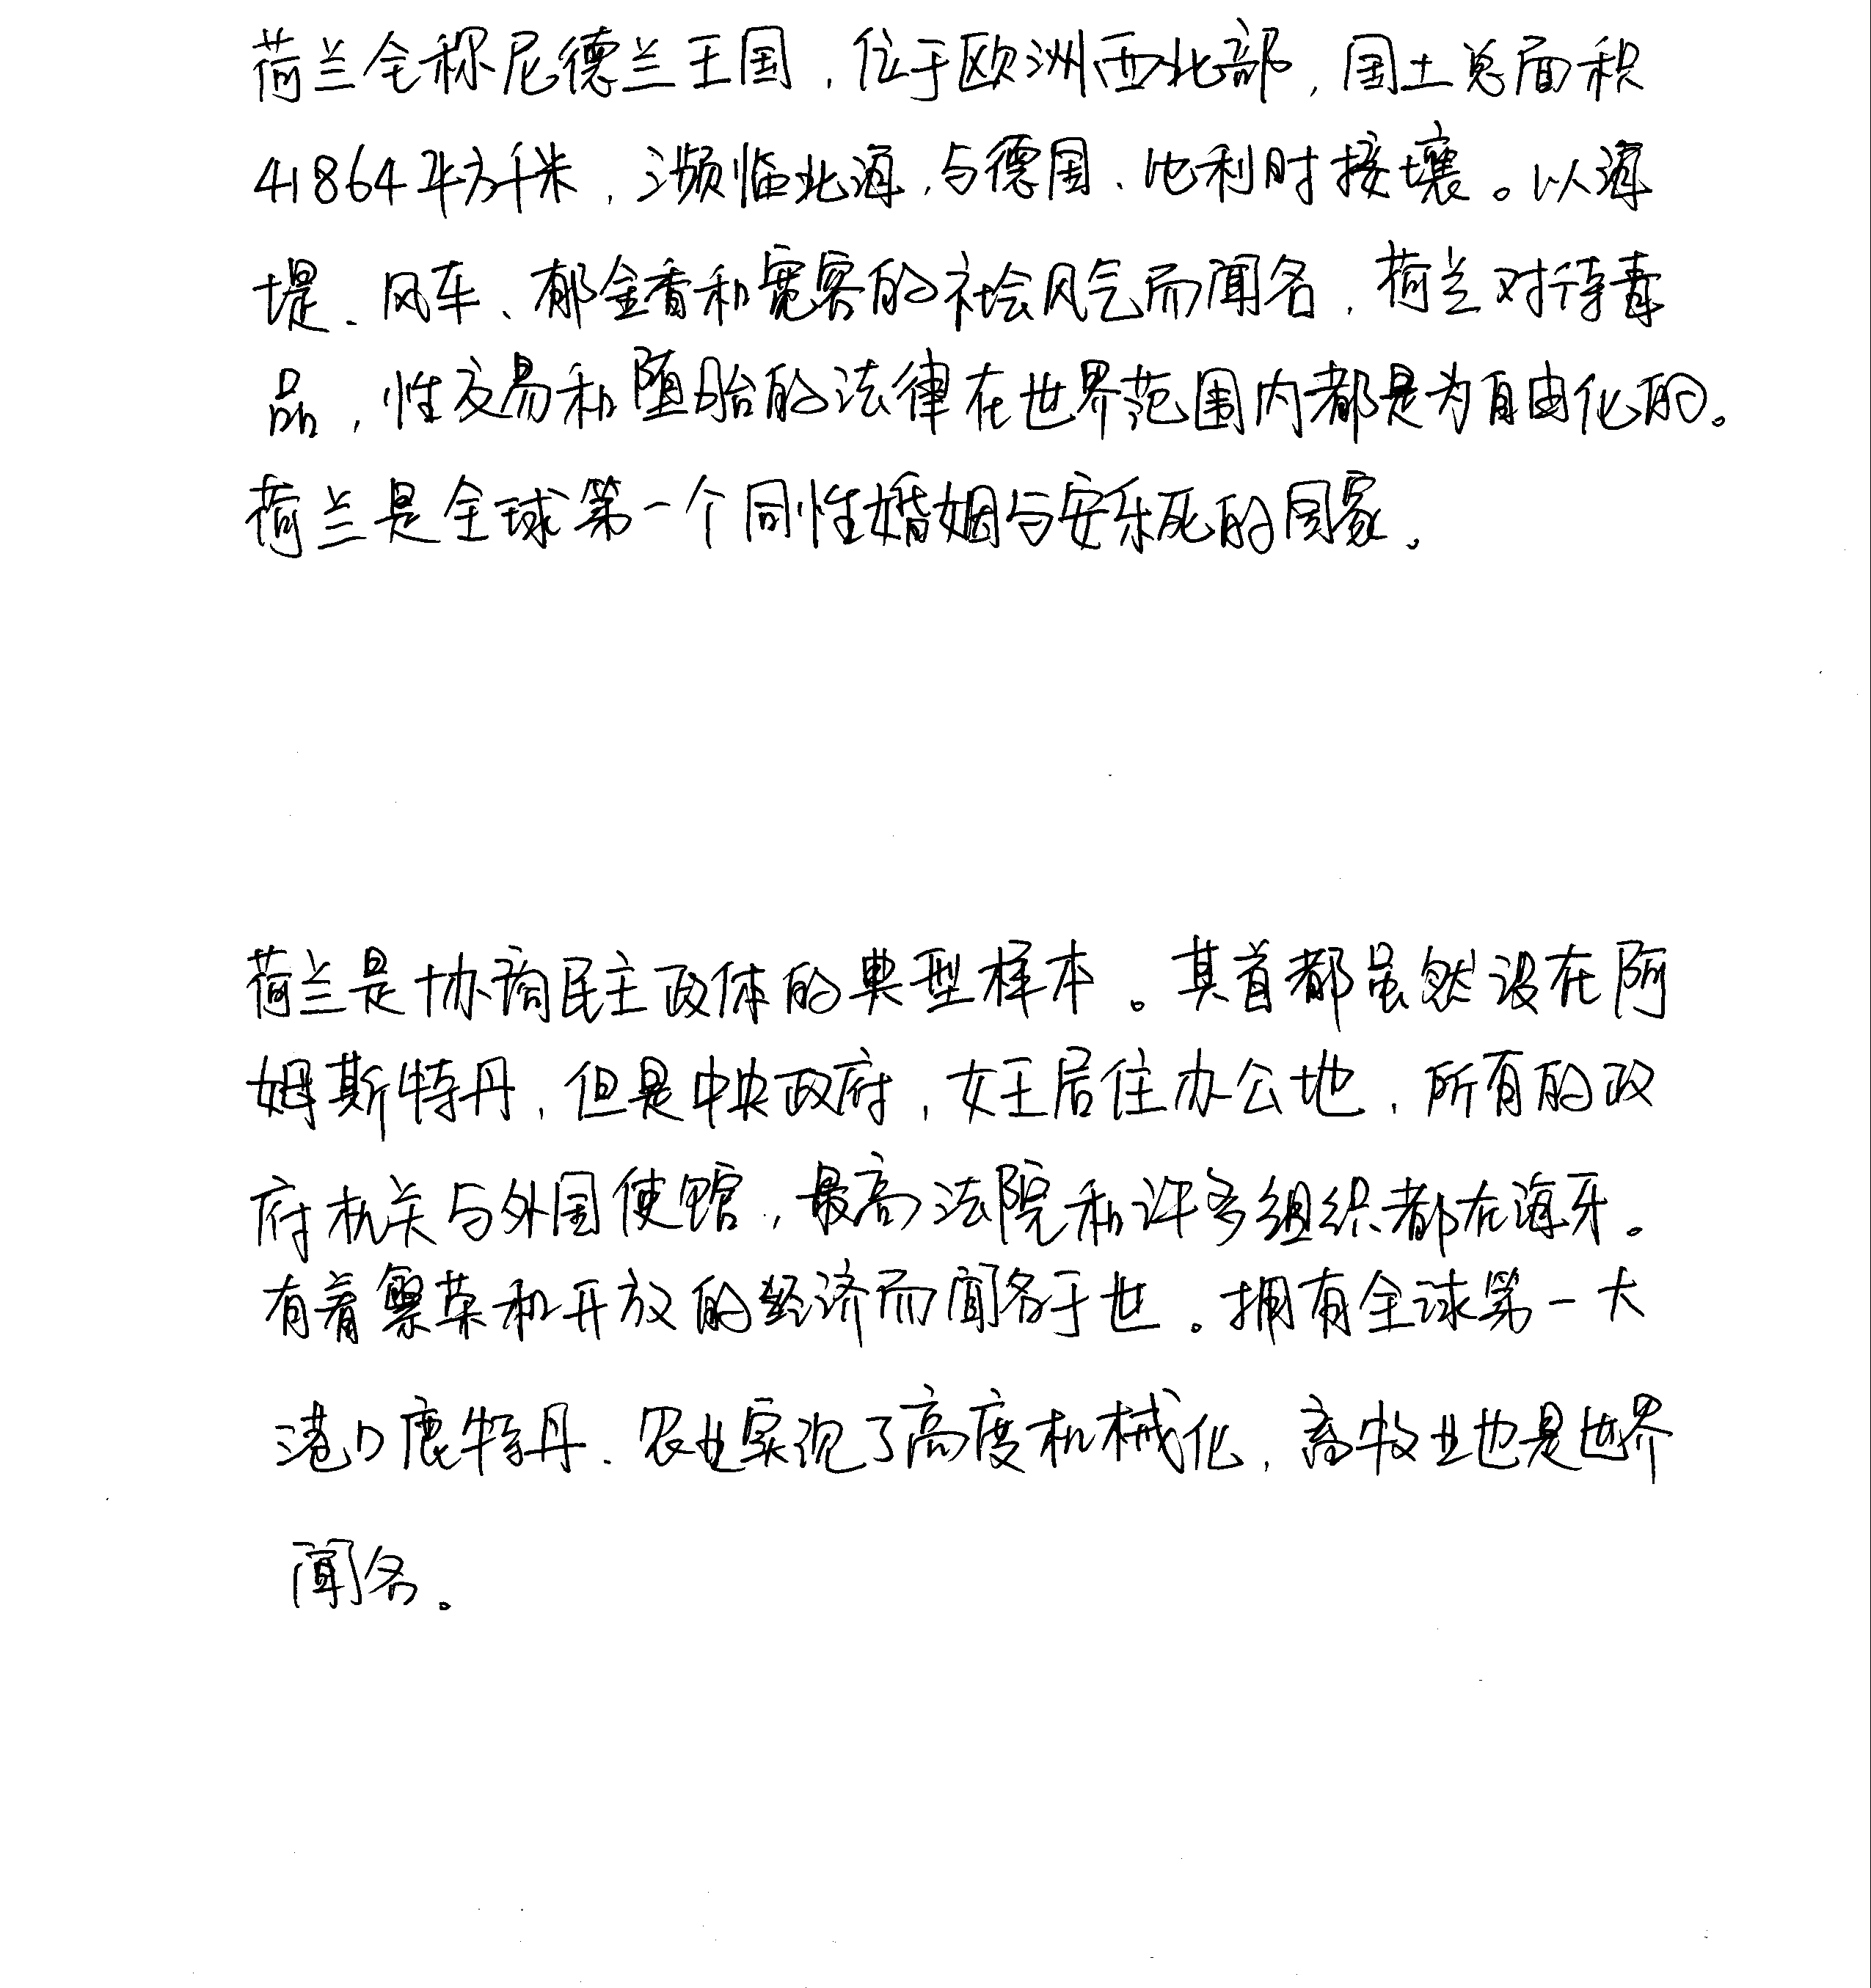 荷兰全称尼德兰王国，位于欧洲西北部，国土总面积
41864平方千米，濒临北海，与德国、比利时接壤。以海
堤、风车、郁金香和宽容的社会风气而闻名，荷兰对待毒
品，性交易和堕胎的法律在世界范围内都是为自由化的。
荷兰是全球第一个同性婚姻与安乐死的国家。
荷兰是协调民主政体的典型样本。其首都虽然设在阿
姆斯特丹，但是中央政府，女王居住办公地，所有的政
府机关与外国使馆，最高法院和许多组织都在海牙。
有着繁荣和开放的经济而闻名于世。拥有全球第一大
港口鹿特丹、农业实现了高度机械化，畜牧业也是世界
闻名。